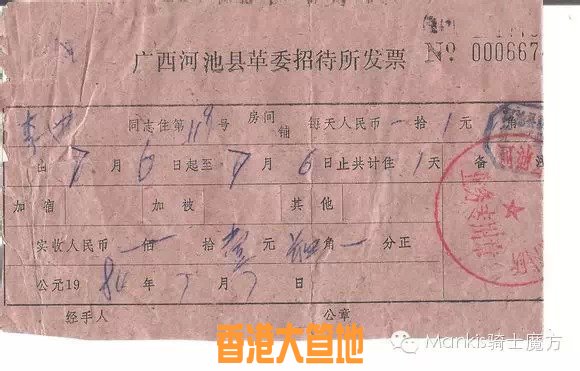 广西河池县革委招待所发票 № 000667
同志住第119号 房间 铺 每天人民币一拾1元 角
由7月6日起至7月6日止共计住1天 备
加宿 加被 其他
实收人民币 佰 拾壹元 角 分正
公元1984年7月7日
经手人 公章
香港大笪地
Mankis骑士魔方